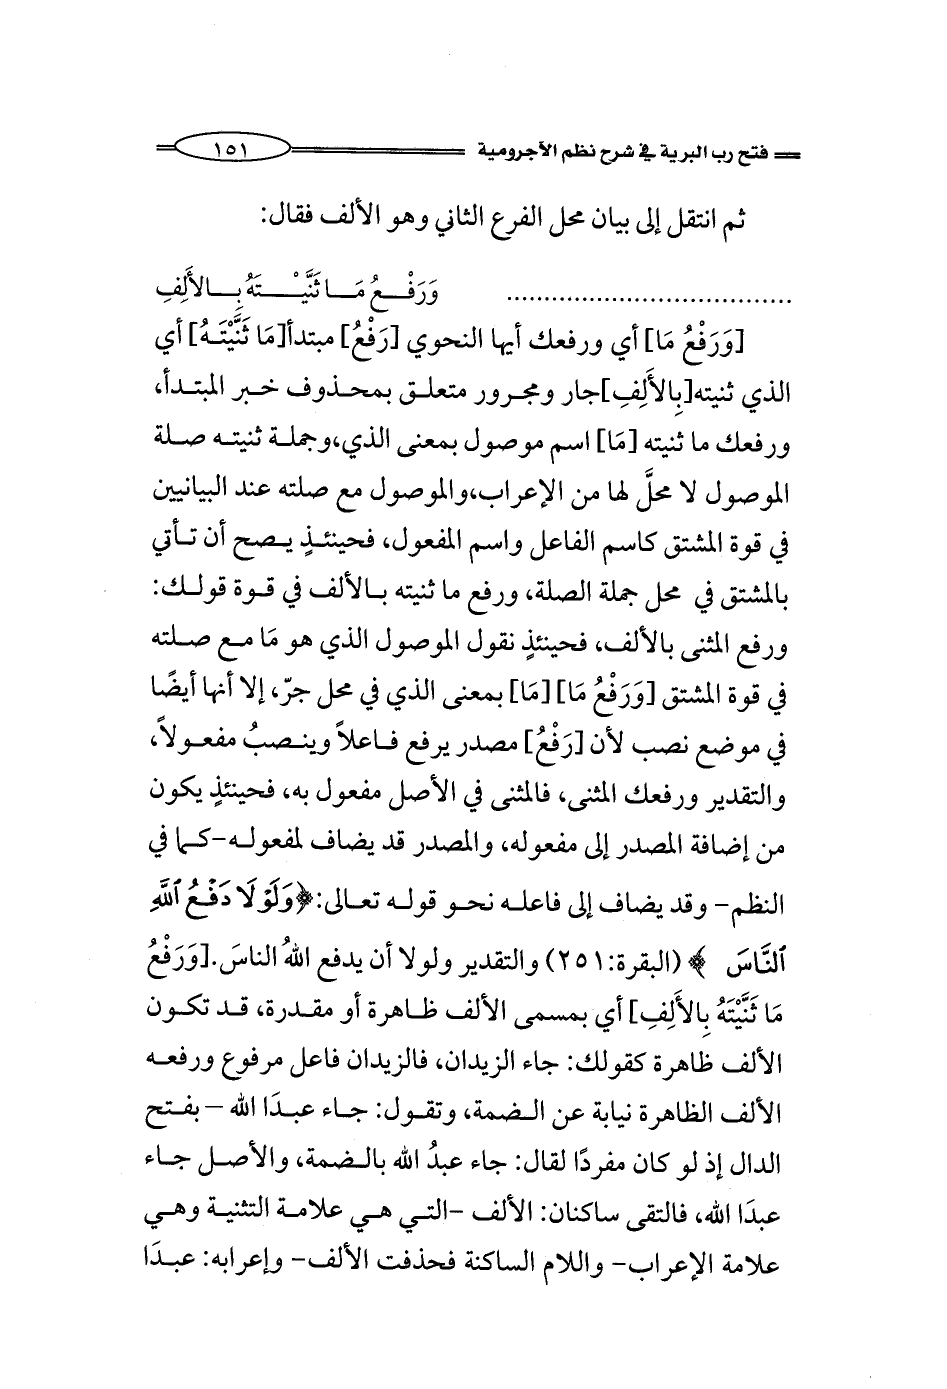 فتح رب البرية في شرح نظم الآجرومية ١٥١
ثم انتقل إلى بيان محل الفرع الثاني وهو الألف فقال:
........................................ وَرَفْـــعُ مَـــا ثَنَّيْـــتَهُ بِـــالأَلِفِ
[وَرَفْعُ مَا] أي ورفعك أيها النحوي [رَفْعُ] مبتدأ[مَا ثَنَّيْتَـهُ] أي
الذي ثنيته[بِالأَلِفِ]جار ومجرور متعلق بمحذوف خبر المبتدأ،
ورفعك ما ثنيته [مَا] اسم موصول بمعنى الذي،وجملة ثنيته صلة
الموصول لا محلَّ لها من الإعراب،والموصول مع صلته عند البيانيين
في قوة المشتق كاسم الفاعل واسم المفعول، فحينئـذٍ يـصح أن تـأتي
بالمشتق في محل جملة الصلة، ورفع ما ثنيته بـالألف في قـوة قولـك:
ورفع المثنى بالألف، فحينئذٍ نقول الموصول الذي هو مَا مع صـلته
في قوة المشتق [وَرَفْعُ مَا] [مَا] بمعنى الذي في محل جرّ، إلا أنها أيضًا
في موضع نصب لأن [رَفْعُ] مصدر يرفع فـاعلاً وينـصبُ مفعـولاً،
والتقدير ورفعك المثنى، فالمثنى في الأصل مفعول به، فحينئذٍ يكون
من إضافة المصدر إلى مفعوله، والمصدر قد يضاف لمفعولـه-كـما في
النظم- وقد يضاف إلى فاعلـه نحـو قولـه تعـالى:﴿وَلَوْلَا دَفْعُ ٱللَّهِ
ٱلنَّاسَ ﴾ (البقرة:٢٥١) والتقدير ولولا أن يدفع اللهُ الناسَ.[وَرَفْعُ
مَا ثَنَّيْتَهُ بِالأَلِفِ] أي بمسمى الألف ظـاهرة أو مقـدرة، قـد تكـون
الألف ظاهرة كقولك: جاء الزيدان، فالزيدان فاعل مرفوع ورفعـه
الألف الظاهرة نيابة عن الـضمة، وتقـول: جـاء عبـدَا الله -بفـتح
الدال إذ لو كان مفردًا لقال: جاء عبدُ الله بالـضمة، والأصـل جـاء
عبدَا الله، فالتقى ساكنان: الألف -التـي هـي علامـة التثنيـة وهـي
علامة الإعراب- واللام الساكنة فحذفت الألف- وإعرابه: عبـدَا